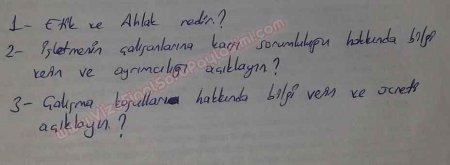 1- Etik ve Ahlak nedir?
2- İşletmenin çalışanlarına karşı sorumluluğu hakkında bilgi
verin ve ayrımcılığı açıklayın?
3- Çalışma koşulları hakkında bilgi verin ve ücreti
açıklayın?